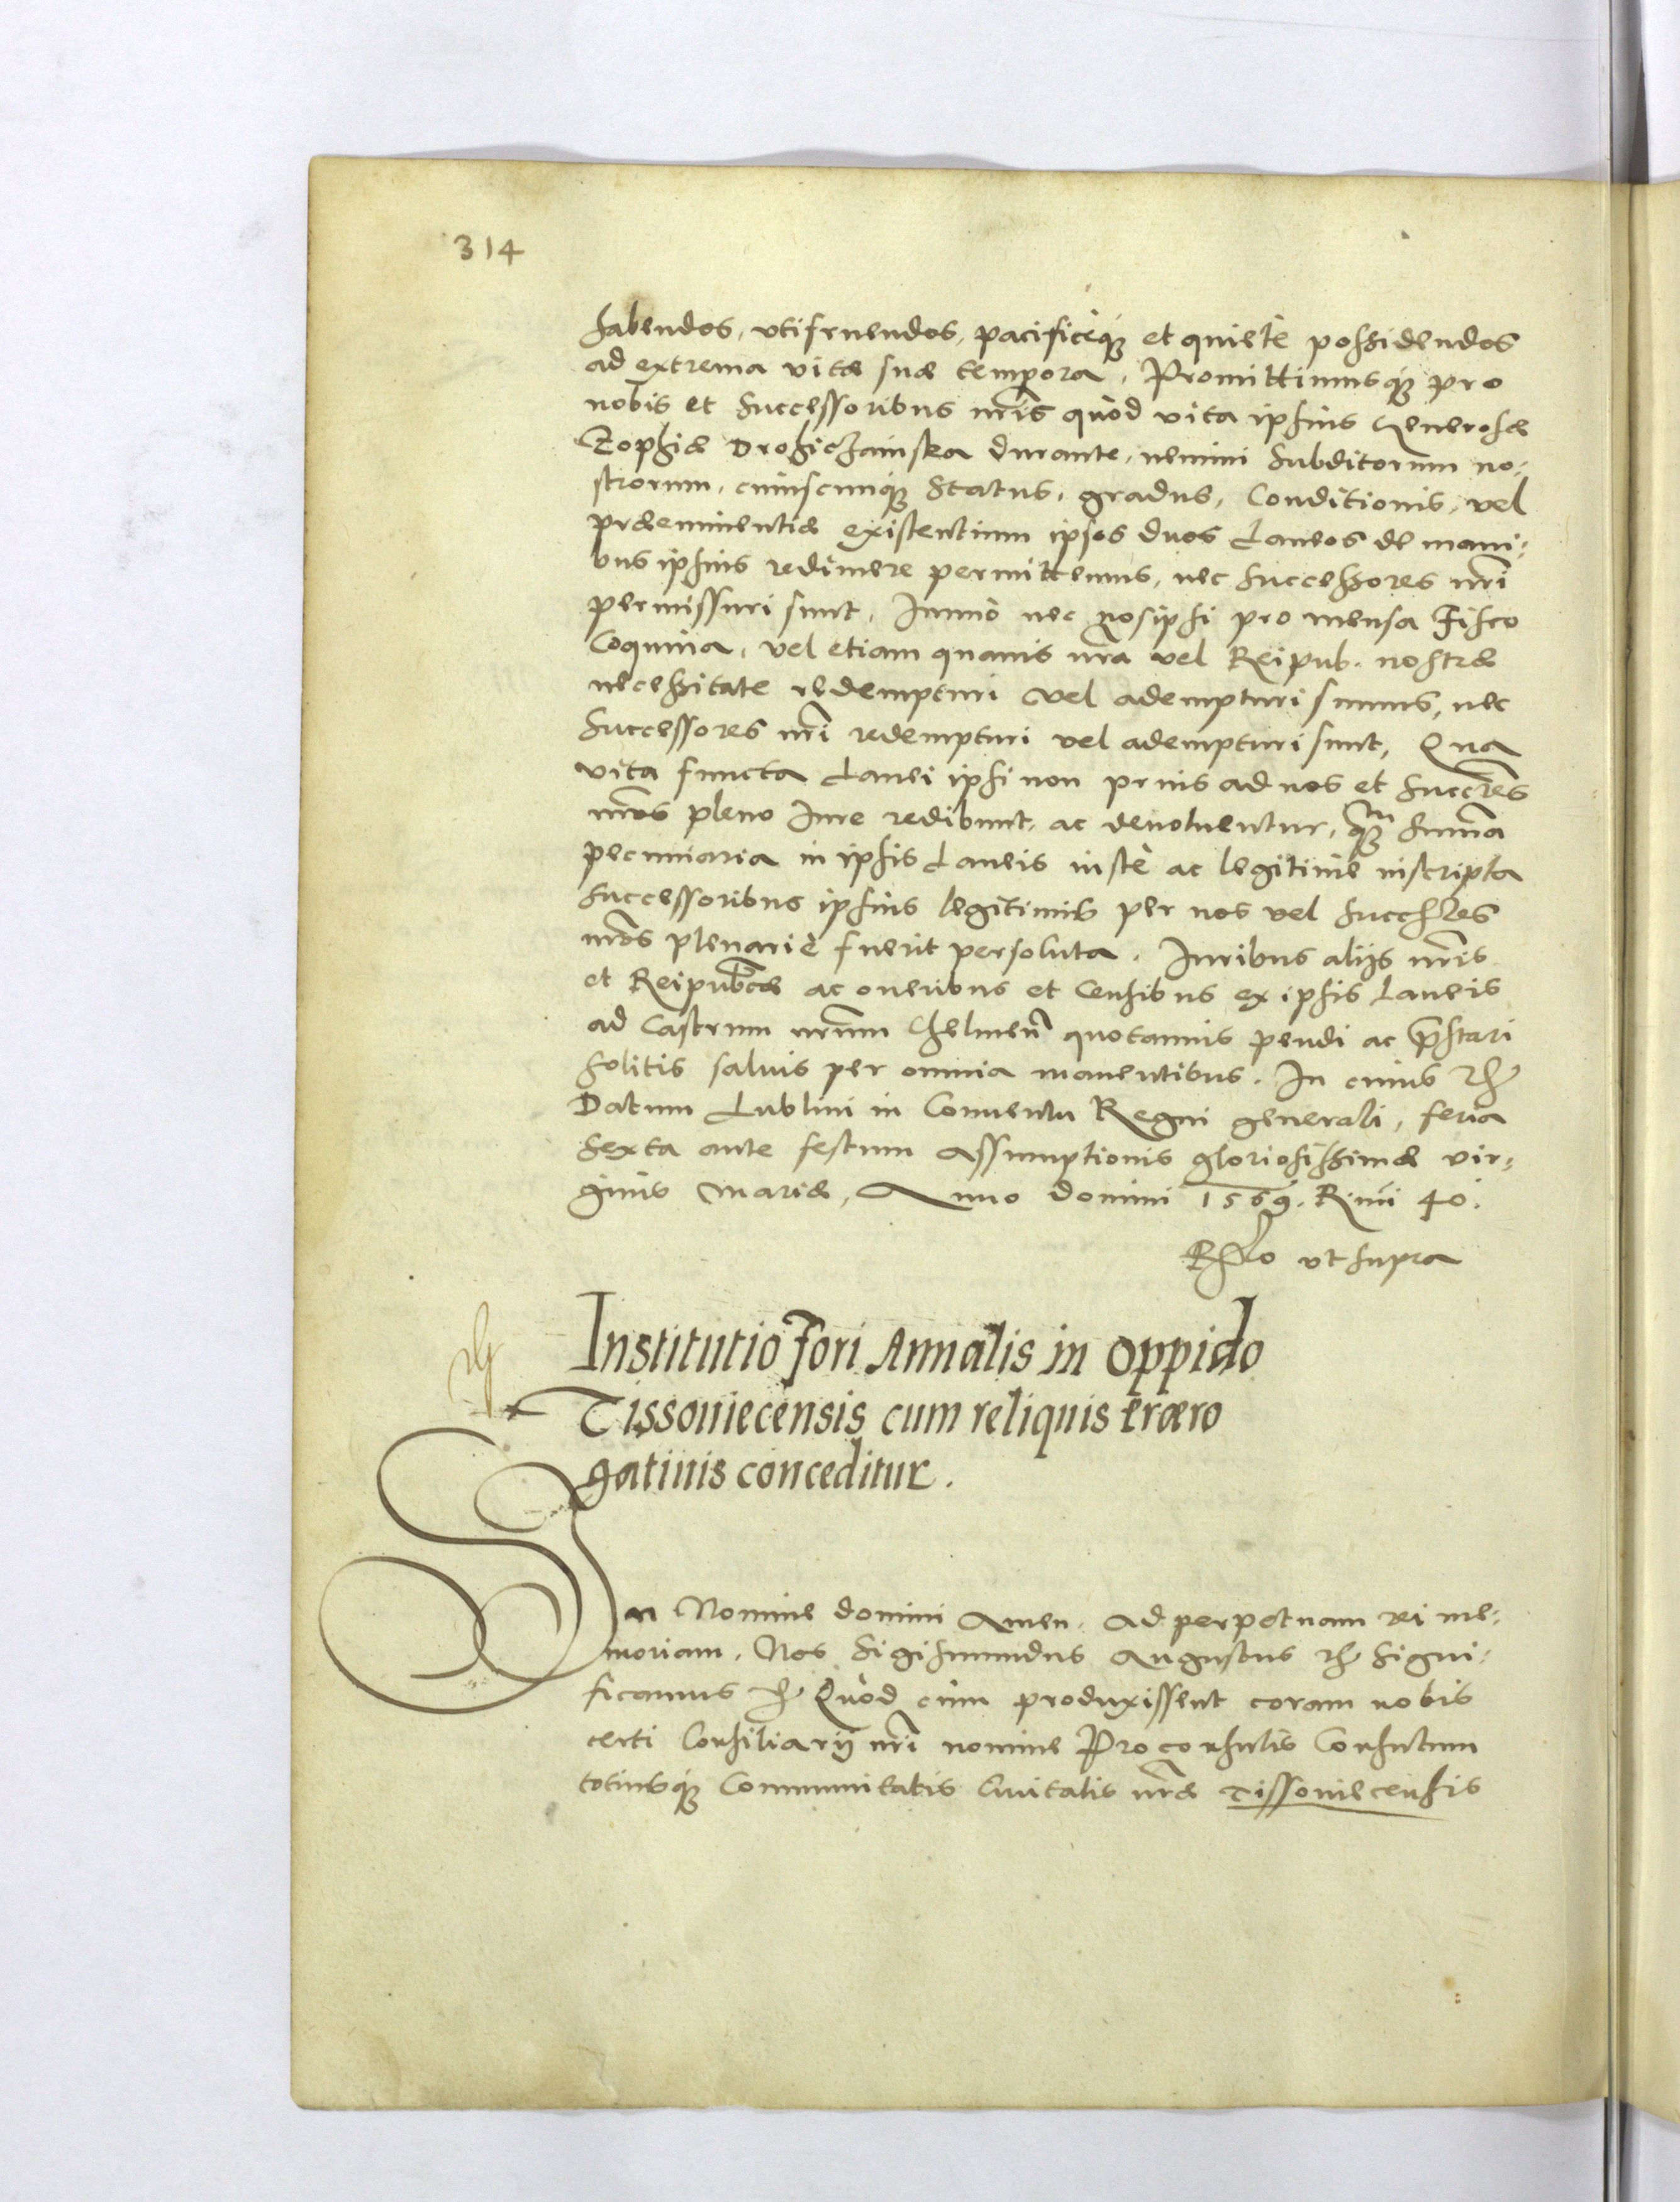 314
habendos, utifruendos, pacificeq; et quietè possidendos
ad extrema vitæ suæ tempora. Promittimusq; pro
nobis et Successoribus nr̃is quòd vita ipsius Generosæ
Zophiæ Drohiczainska durante, nemini Subditorum no:
strorum, cuiuscunq; Status, gradus, Conditionis, vel
præeminentiæ existentium ipsos duos Laneos de mani:
bus ipsius redimere permittemus, nec Successores nr̃i
permissuri sunt, Immò nec nosipsi pro mensa Fisco
Coquina, vel etiam quamis nr̃a vel Reipub. nostræ
necessitate redempturi vel adempturi sumus, nec
Successores nr̃i redempturi vel adempturi sunt, Qua
vita functa Lanei ipsi non prius ad nos et Succr̃es
nr̃os pleno Iure redibunt, ac devoluentur, q̃m Summa
pecuniaria in ipsis Laneis iustè ac legitimè inscripta
Successoribus ipsius legitimis per nos vel Succes̃res
nr̃os plenariè fuerit persoluta. Iuribus alijs nr̃is
et Reipub̃cæ ac oneribus et Censibus ex ipsis Laneis
ad Castrum nr̃um Chelmeñ quotannis pendi ac p̃stari
solitis saluis per omnia manentibus. In cuius rẽ
Datum Lublini in Conuentu Regni generali, feria
Sexta ante festum Assumptionis gloriosissimæ vir:
ginis Mariæ, Anno Domini 1569. R. nr̃i 40.
Rl̃o ut supra
Institutio fori Annalis in oppido
Tissouiecensis cum reliquis præro
gatiuis conceditur.
In Nomine domini Amen. Ad perpetuam rei me:
moriam. Nos Sigismundus Augustus rẽ Signi:
ficamus rẽ Quòd cùm produxissent coram nobis
certi Consiliarij nr̃i nomine Proconsulis Consulum
totiusq; Communitatis Ciuitatis nr̃æ Tissouiecensis